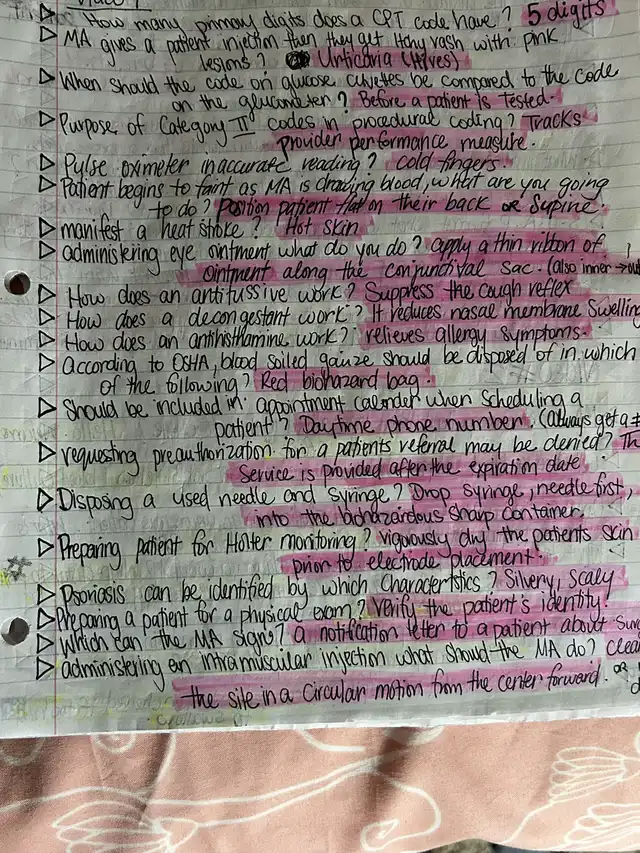 How many primary digits does a CPT code have? 5 digits
MA gives a patient injection then they get itchy rash with pink
lesions? Urticaria (Hives)
When should the code on glucose cuvetes be compared to the code
on the glucometer? Before a patient is tested.
Purpose of Category II codes in procedural coding? Tracks
Provider performance measure.
Pulse oximeter inaccurate reading? cold fingers.
Patient begins to faint as MA is drawing blood, what are you going
to do? Position patient flat on their back or supine.
manifest a heat stroke? Hot skin
administering eye ointment what do you do? apply a thin ribbon of
ointment along the conjunctival sac. (also inner → out
How does an antitussive work? Suppress the cough reflex
How does a decongestant work? It reduces nasal membrane swelling
How does an antihisthamine work? relieves allergy symptoms.
according to OSHA, blood soiled gauze should be disposed of in which
of the following? Red biohazard bag.
Should be included in appointment calender when scheduling a
patient? Daytime phone number. (always get a #
requesting preauthorization for a patients referral may be denied? Th
Service is provided after the expiration date
Disposing a used needle and syringe? Drop syringe, needle first,
into the biohazardous sharp container.
Preparing patient for Holter monitoring? vigorously dry the patients skin
prior to electrode placement!
Psoriasis can be identified by which characteristics? Silvery, scaly
Preparing a patient for a physical exam? Verify the patient's identity!
Which can the MA sign? a notification letter to a patient about
administering an intramuscular injection what should the MA do? clean
the site in a circular motion from the center forward. or